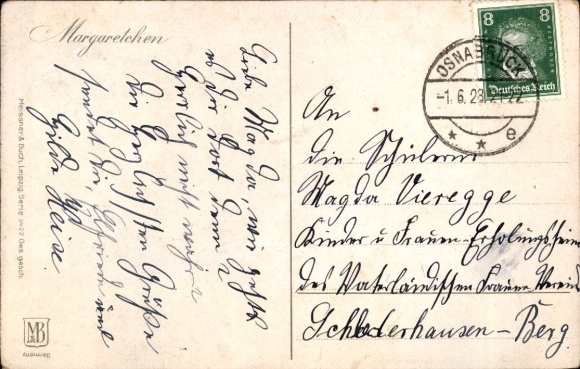 Margaretchen
Liebe Magda, wie geht
es Dir dort denn?
Herzlich
die herzlichsten Grüße
sendet Dir, und
Hilde Heise
Meissner & Buch, Leipzig. Serie 2422 Ges. gesch.
M&B
Germany
8 8
Deutsches Reich
OSNABRÜCK
-1.6.28.21-22
* * e
An
die Schülerin
Magda Vieregge
Kinder u Frauen-Erholungsheim
des Vaterländischen Frauen Verein
Schlederhausen-Berg